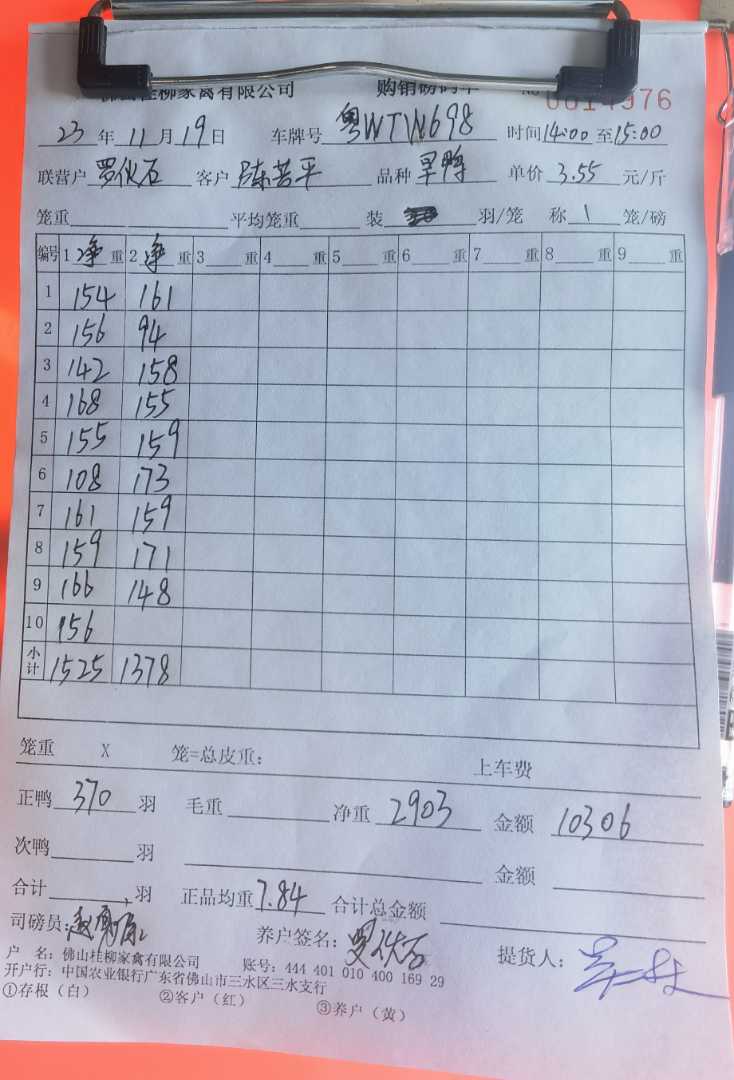 佛山桂柳家禽有限公司 购销磅码单 No 0014976
23年11月19日 车牌号 粤WTW698 时间14:00至15:00
联营户 罗伙石 客户 陈苦平 品种 旱鸭 单价 3.55 元/斤
笼重 平均笼重 装 羽/笼 称 1 笼/磅
编号 1 净 重 2 净 重 3 重 4 重 5 重 6 重 7 重 8 重 9 重
1 154 161
2 156 94
3 142 158
4 168 155
5 155 159
6 108 173
7 161 159
8 159 171
9 166 148
10 156
小计 1525 1378
笼重 X 笼=总皮重: 上车费
正鸭 370 羽 毛重 净重 2903 金额 10306
次鸭 羽 金额
合计 羽 正品均重 7.84 合计总金额
司磅员: 养户签名: 罗伙石 提货人:
户 名: 佛山桂柳家禽有限公司 账号: 444 401 010 400 169 29
开户行: 中国农业银行广东省佛山市三水区三水支行
①存根(白) ②客户(红) ③养户(黄)